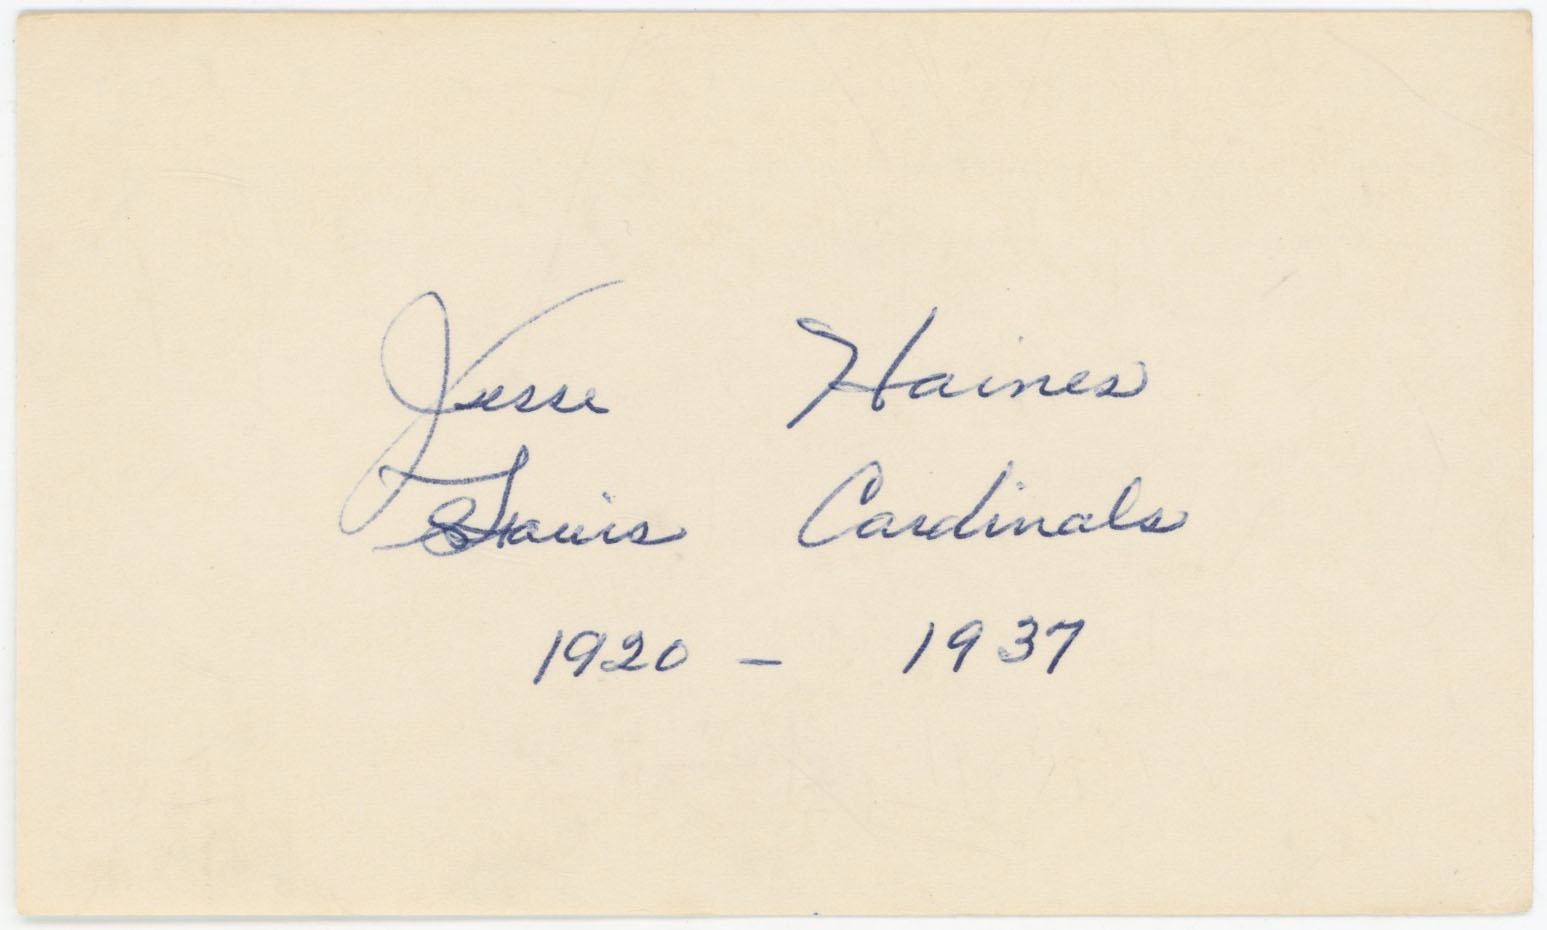 Jesse Haines
St Louis Cardinals
1920 - 1937